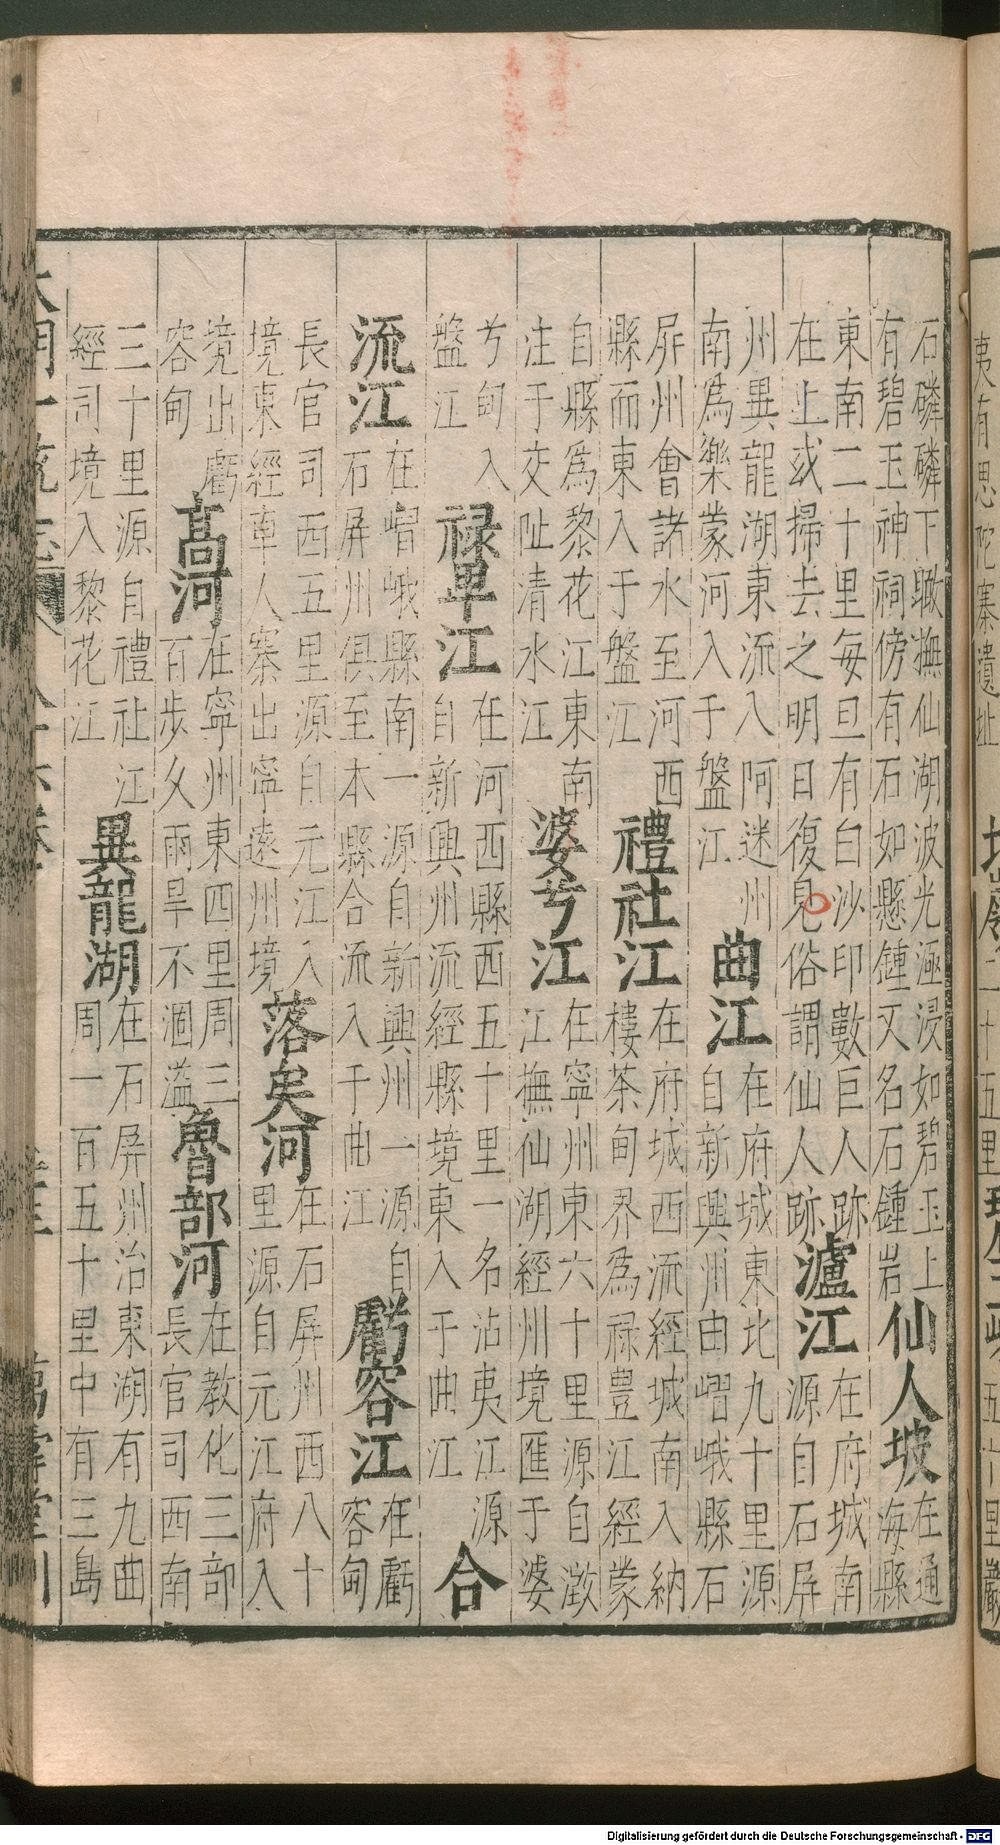 石磷磷下瞰撫仙湖波光極浸如碧玉上
有碧玉神祠傍有石如懸鍾又名石鍾岩
仙人坡
在通
海縣
東南二十里每旦有白沙印數巨人跡
在上或掃去之明日復見俗謂仙人跡
瀘江
在府城南
源自石屏
州異龍湖東流入阿迷州
南為樂蒙河入于盤江
曲江
在府城東北九十里源
自新興州由嶍峨縣石
屏州會諸水至河西
縣而東入于盤江
禮社江
在府城西流經城南入納
樓茶甸界為祿豊江經蒙
自縣為黎花江東南
注于交阯清水江
婆兮江
在寧州東六十里源自澂
江撫仙湖經州境匯于婆
兮甸入
盤江
祿卑江
在河西縣西五十里一名沾夷江源
自新興州流經縣境東入于曲江
合
流江
在嶍峨縣南一源自新興州一源自
石屏州俱至本縣合流入于曲江
虧容江
在虧
容甸
長官司西五里源自元江入
境東經車人寨出寧遠州境
落矣河
在石屏州西八十
里源自元江府入
境止虧
容甸
高河
在寧州東四里周三
百步久雨旱不涸溢
魯部河
在教化三部
長官司西南
三十里源自禮社江
經司境入黎花江
異龍湖
在石屏州治東湖有九曲
周一百五十里中有三島
夷有思陀寨遺址
Digitalisierung gefördert durch die Deutsche Forschungsgemeinschaft - DFG